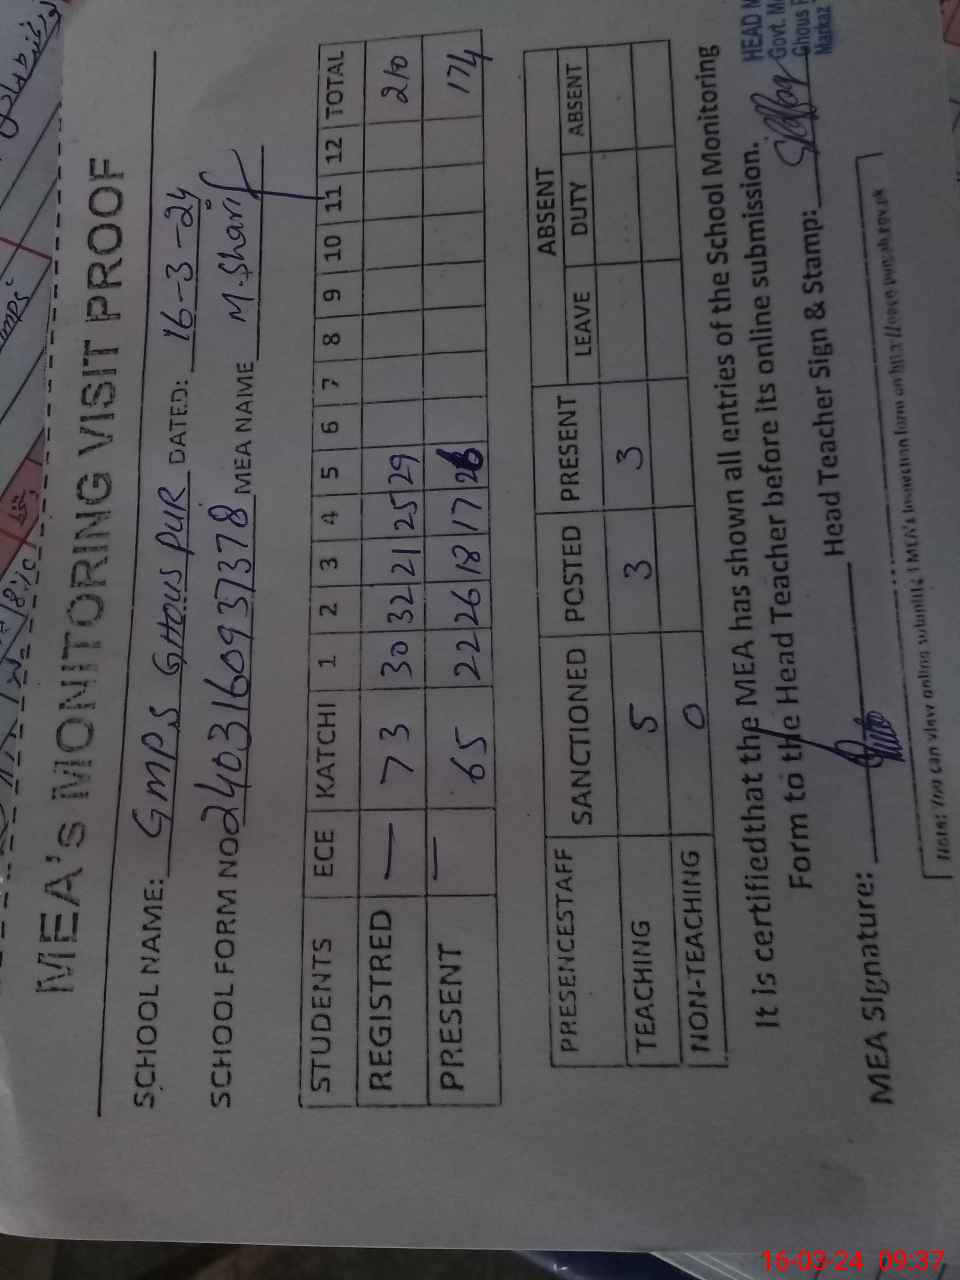 MEA's MONITORING VISIT PROOF
SCHOOL NAME: GMPS GHOUS PUR DATED: 16-3-24
SCHOOL FORM NO 2403160937378 MEA NAIME M.Sharif
STUDENTS ECE KATCHI 1 2 3 4 5 6 7 8 9 10 11 12 TOTAL
REGISTRED — 73 30 32 21 25 29 210
PRESENT — 65 22 26 18 17 26 174
PRESENCESTAFF SANCTIONED POSTED PRESENT ABSENT
LEAVE DUTY ABSENT
TEACHING 5 3 3
NON-TEACHING 0
It is certifiedthat the MEA has shown all entries of the School Monitoring
Form to the Head Teacher before its online submission.
Head Teacher Sign & Stamp:
HEAD
Govt.
Ghous
Markaz
MEA Signature:
Note: You can view online
MEA's Inspection form on
16-03-24 09:37